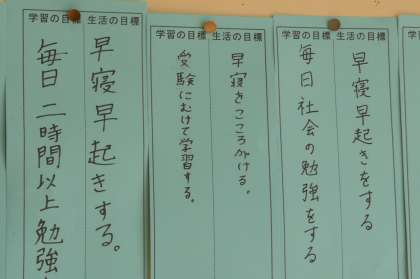 学習の目標
生活の目標
早寝早起きする。
毎日二時間以上勉強
学習の目標
生活の目標
早寝をこころがける。
受験にむけて学習する。
学習の目標
生活の目標
早寝早起きをする
毎日社会の勉強をする